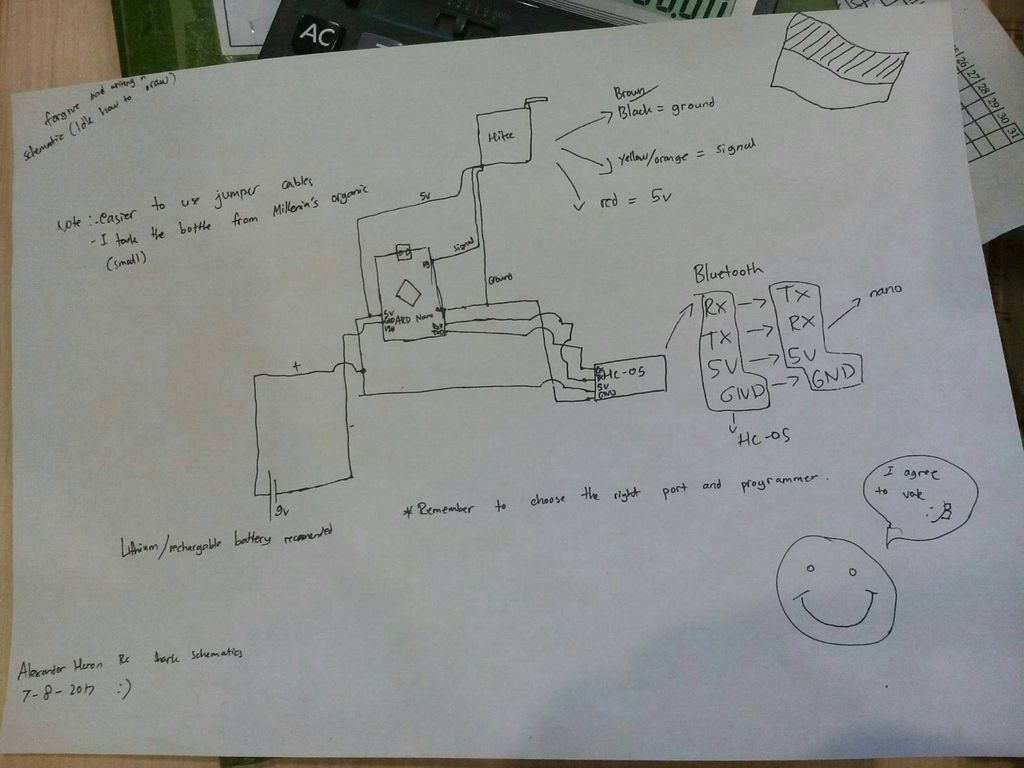 AC
forgive bad writing n
schematic (Idk how to draw)
26 27 28 29 30 31
Hitec
Brown
Black = ground
yellow/orange = signal
red = 5v
Note :- easier to use jumper cables
- I took the bottle from Millenia's organic
(small)
5v
signal
Ground
5V
GND
VIN
ARD Nano
Hc-05
5V
GND
Bluetooth
RX → TX
TX → RX
5V → 5V
GND → GND
nano
Hc-05
+
-
9v
Lithium/rechargable battery recomended
* Remember to choose the right port and programmer.
I agree
to vote
:B
Alexander Huron Rc shark schematics
7-8-2017 :)